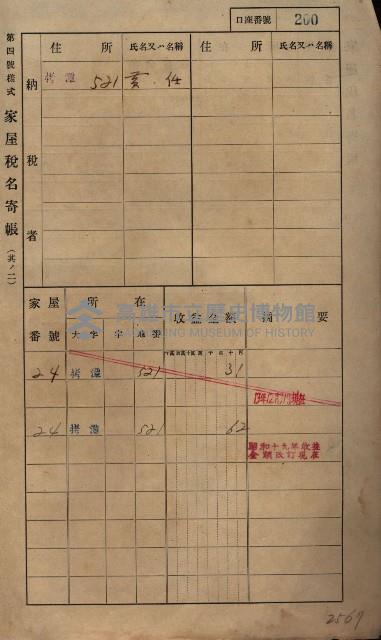 口座番號 200
第四號樣式 家屋稅名寄帳 (其ノ二)
納稅者
住所 氏名又ハ名稱 住所 氏名又ハ名稱
拷潭 521 黃 仕
家屋番號 所在 收益金額 摘要
大字 字 地番
24 拷潭 521 31
24 拷潭 521 62
昭和十九年收益
金額改訂現在
高雄市立歷史博物館
KAOHSIUNG MUSEUM OF HISTORY
2567